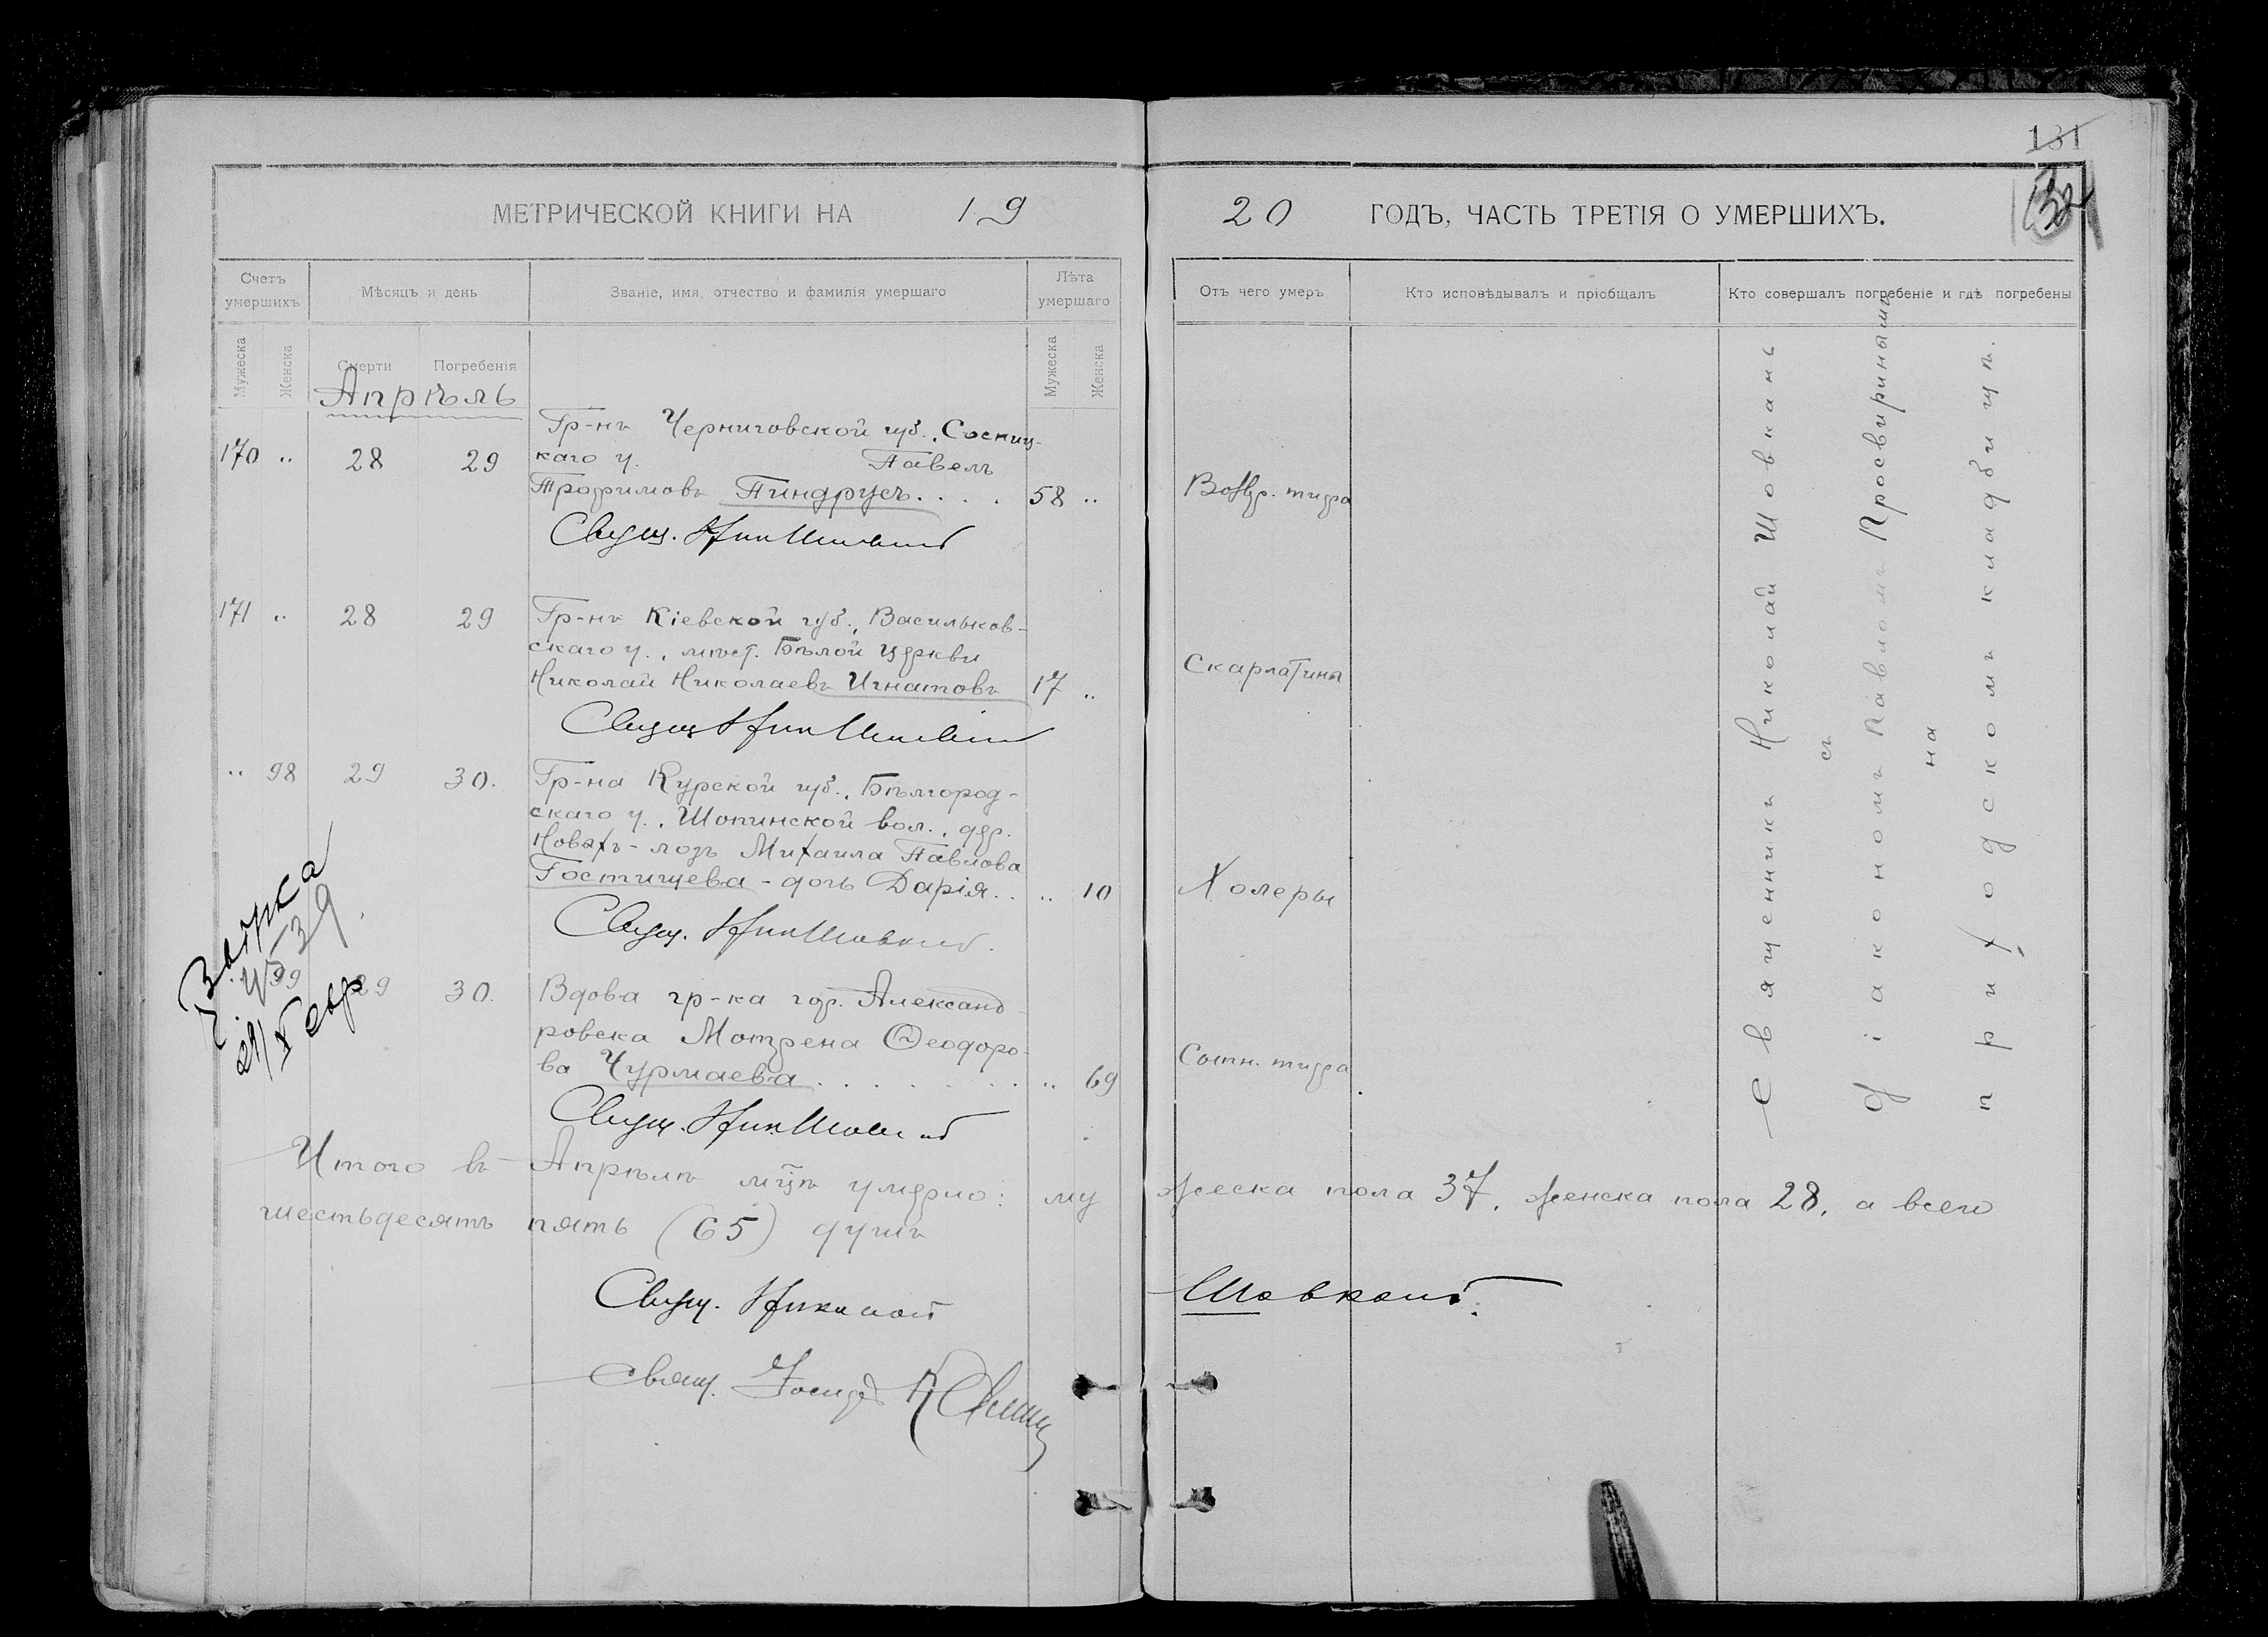 131
132
МЕТРИЧЕСКОЙ КНИГИ НА 19
20 ГОДЪ, ЧАСТЬ ТРЕТІЯ О УМЕРШИХЪ.
Счетъ умершихъ
Мѣсяцъ и день
Званіе, имя, отчество и фамилія умершаго
Лѣта умершаго
Отъ чего умеръ
Кто исповѣдывалъ и пріобщалъ
Кто совершалъ погребеніе и гдѣ погребены
Мужеска
Женска
Смерти
Погребенія
Мужеска
Женска
Апрѣль
Гр-нъ Черниговской губ., Сосниц-
170 „ 28 29 каго у. Павелъ
Трофимовъ Пиндрусъ.... 58 „ Возвр. тифа
Свящ. Ник Шовкань
171 „ 28 29 Гр-нъ Кіевской губ., Васильков-
скаго у., мѣст. Бѣлой Церкви
Николай Николаевъ Игнатовъ 17 „ Скарлатины
Свящ Ник Шовкань
„ 98 29 30. Гр-на Курской губ., Бѣлгород-
скаго у., Шопинской вол., дер.
Новыхъ-лозъ Михаила Павлова
Гостищева - дочь Дарія.. „ 10 Холеры
Свящ. Ник Шовкань.
99 29 30. Вдова гр-ка гор. Александ-
ровска Мотрена Ѳеодоро-
ва Чурмаева........ „ 69 Сыпн. тифа
Свящ. Ник Шовкань
Итого въ Апрѣлѣ мцѣ умерло: мужеска пола 37, женска пола 28, а всего
шестьдесятъ пять (65) душъ
Свящ. Николай Шовкань.
Свящ. Іосифъ
Священникъ Николай Шовкань
съ
діакономъ Павломъ Просвиринымъ
на
приходскомъ кладбищѣ.